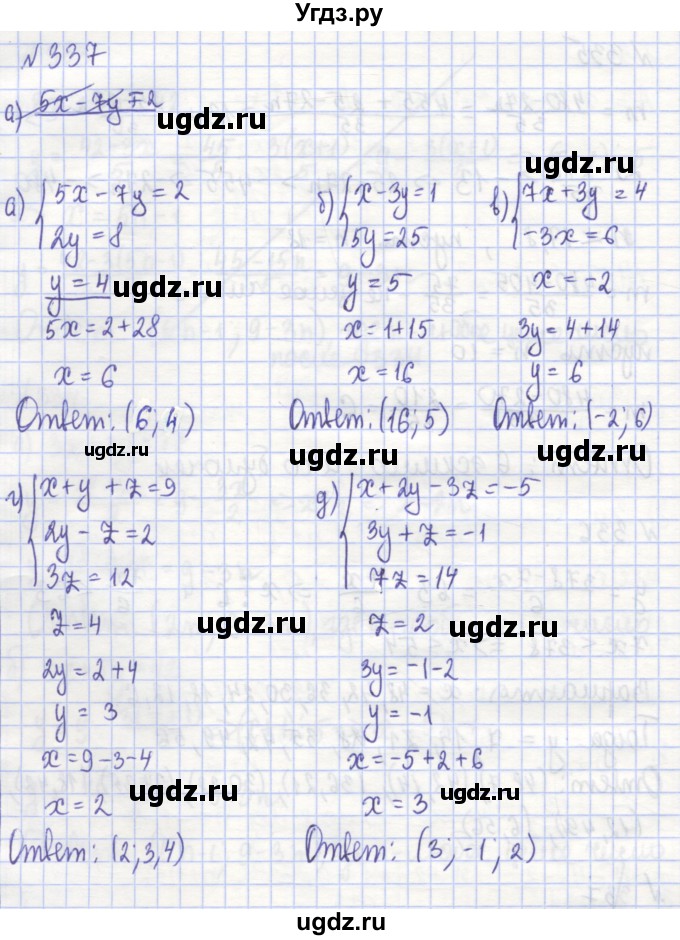 Угдз.ру
№ 337
а) 5x - 7y = 2
ugdz.ru
ugdz.ru
а) { 5x - 7y = 2
2y = 8
y = 4
ugdz.ru
5x = 2 + 28
x = 6
Ответ: (6; 4)
ugdz.ru
б) { x - 3y = 1
5y = 25
y = 5
x = 1 + 15
x = 16
Ответ: (16; 5)
в) { 7x + 3y = 4
-3x = 6
x = -2
3y = 4 + 14
y = 6
Ответ: (-2; 6)
ugdz.ru
г) { x + y + z = 9
2y - z = 2
3z = 12
z = 4
ugdz.ru
2y = 2 + 4
y = 3
x = 9 - 3 - 4
x = 2
ugdz.ru
Ответ: (2; 3, 4)
д) { x + 2y - 3z = -5
3y + z = -1
7z = 14
z = 2
ugdz.ru
3y = -1 - 2
y = -1
x = -5 + 2 + 6
x = 3
ugdz.ru
Ответ: (3; -1; 2)
ugdz.ru